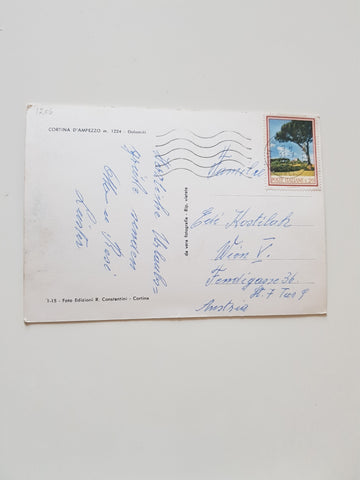 1256
CORTINA D'AMPEZZO m. 1224 - Dolomiti
Herzliche Urlaubs=
grüße senden
Otto u Rosi
1-15 - Foto Edizioni R. Constantini - Cortina
da vera fotografia - Rip. vietata
POSTE ITALIANE
Familie
Edi Kostilek
Wien V.
Fendigasse 36
St. 7 Tür 9
Austria